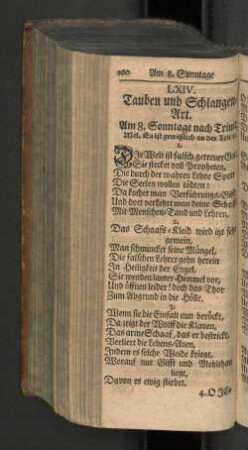 160 Am 8. Sonntage
LXIV.
Tauben und Schlangen
Art.
Am 8. Sonntage nach Trinit.
Mel. Es ist gewißlich an der Zeit
1.
Die Welt ist falsch getreuer
Sie stecket voll Propheten,
Die durch der wahren Lehre
Die Seelen wollen tödten:
Da kochet man Verführungs-
Und dort verkehrt man deine
Mit Menschen-Tand und Lehren.
2.
Das Schaafs-Kleid wird itzt sehr
gemein,
Man schmücket seine Mängel,
Die falschen Lehrer gehn herein
In Heiligkeit der Engel,
Sie wenden lauter Himmel vor,
Und öffnen leider! doch das Thor
Zum Abgrund in die Hölle.
3.
Wenn sie die Einfalt nun berückt,
Da zeigt der Wolff die Klauen,
Das arme Schaaf, das er bestrickt,
Verliert die Lebens-Auen,
Indem es solche Weide kriegt,
Worauf nur Gifft und Mehlthau
liegt,
Davon es ewig stirbet.
4. O JE-